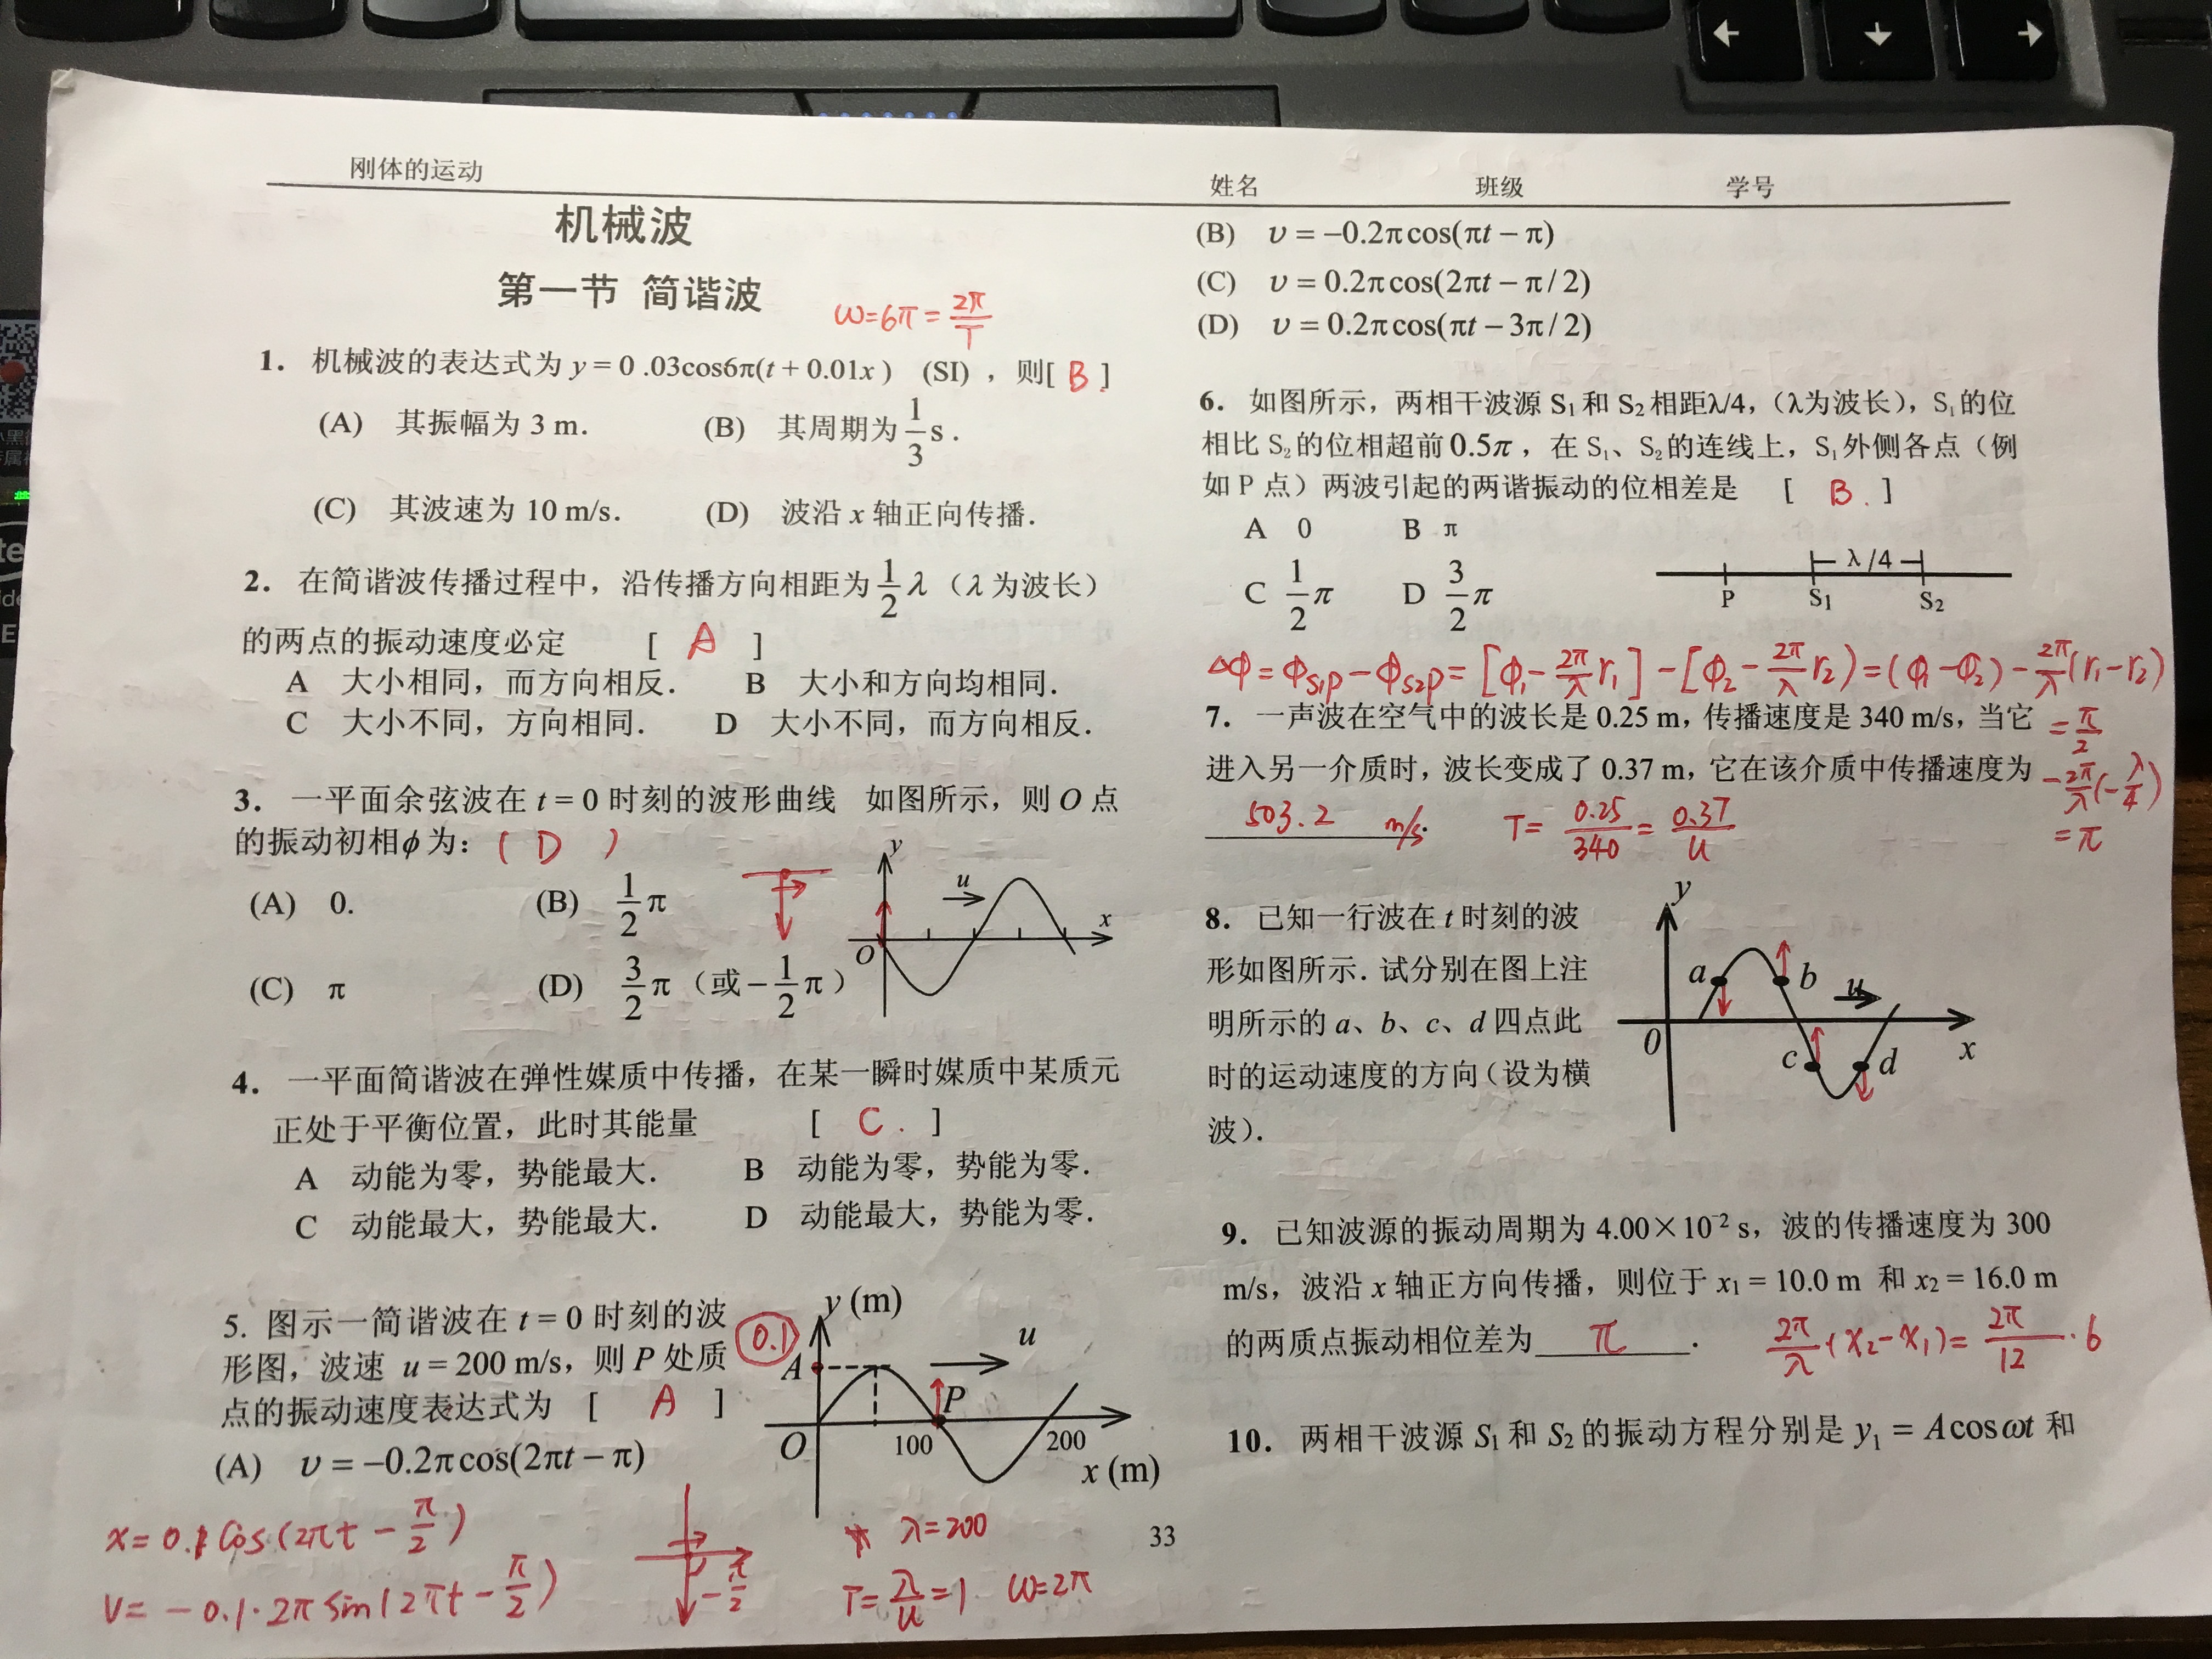 刚体的运动
姓名 班级 学号
机械波
第一节 简谐波
ω=6π=2π/T
1. 机械波的表达式为 y = 0 .03cos6π(t + 0.01x ) (SI) ，则[ B ]
(A) 其振幅为 3 m. (B) 其周期为 1/3 s .
(C) 其波速为 10 m/s. (D) 波沿 x 轴正向传播.
2. 在简谐波传播过程中，沿传播方向相距为 1/2 λ（λ 为波长）
的两点的振动速度必定 [ A ]
A 大小相同，而方向相反. B 大小和方向均相同.
C 大小不同，方向相同. D 大小不同，而方向相反.
3. 一平面余弦波在 t = 0 时刻的波形曲线 如图所示，则 O 点
的振动初相ϕ 为: ( D )
(A) 0. (B) 1/2 π
(C) π (D) 3/2 π（或−1/2 π）
y
u
x
O
4. 一平面简谐波在弹性媒质中传播，在某一瞬时媒质中某质元
正处于平衡位置，此时其能量 [ C. ]
A 动能为零，势能最大. B 动能为零，势能为零.
C 动能最大，势能最大. D 动能最大，势能为零.
5. 图示一简谐波在 t = 0 时刻的波
形图，波速 u = 200 m/s，则 P 处质
点的振动速度表达式为 [ A ]
(A) υ = −0.2π cos(2πt − π)
0.1
y (m)
u
A
P
O
100
200
x (m)
x= 0.1 Cos(2πt − π/2)
V= − 0.1·2π Sin(2πt − π/2)
−π/2
λ=200
T=λ/u=1 ω=2π
(B) υ = −0.2π cos(πt − π)
(C) υ = 0.2π cos(2πt − π / 2)
(D) υ = 0.2π cos(πt − 3π / 2)
6. 如图所示，两相干波源 S₁ 和 S₂ 相距λ/4，（λ为波长），S₁ 的位
相比 S₂ 的位相超前 0.5π ，在 S₁、S₂ 的连线上，S₁ 外侧各点（例
如 P 点）两波引起的两谐振动的位相差是 [ B. ]
A 0 B π
C 1/2 π D 3/2 π
λ /4
P S₁ S₂
Δφ = φS₁P − φS₂P = [φ₁ − 2π/λ r₁] − [φ₂ − 2π/λ r₂) = (φ₁ − φ₂) − 2π/λ (r₁ − r₂)
= π/2
− 2π/λ (−λ/4)
= π
7. 一声波在空气中的波长是 0.25 m，传播速度是 340 m/s，当它
进入另一介质时，波长变成了 0.37 m，它在该介质中传播速度为
503.2 m/s.
T= 0.25/340 = 0.37/u
8. 已知一行波在 t 时刻的波
形如图所示. 试分别在图上注
明所示的 a、b、c、d 四点此
时的运动速度的方向（设为横
波）.
y
a
b
u
0
c
d
x
9. 已知波源的振动周期为 4.00×10⁻² s，波的传播速度为 300
m/s，波沿 x 轴正方向传播，则位于 x₁ = 10.0 m 和 x₂ = 16.0 m
的两质点振动相位差为 π .
2π/λ ·(x₂−x₁)= 2π/12 · 6
10. 两相干波源 S₁ 和 S₂ 的振动方程分别是 y₁ = A cos ωt 和
33